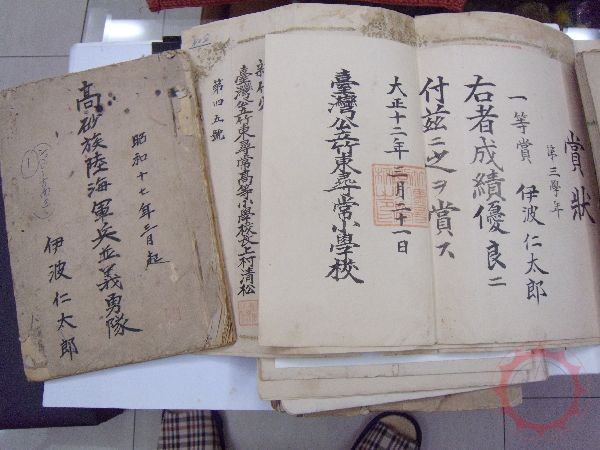 賞狀
第三學年
一等賞 伊波仁太郎
右者成績優良ニ
付茲ニ之ヲ賞ス
大正十二年三月二十一日
臺灣公立竹東尋常小學校
臺灣公立竹東尋常高等小學校長上村清松
第四五號
昭和十七年三月起
高砂族陸海軍兵並義勇隊
伊波仁太郎